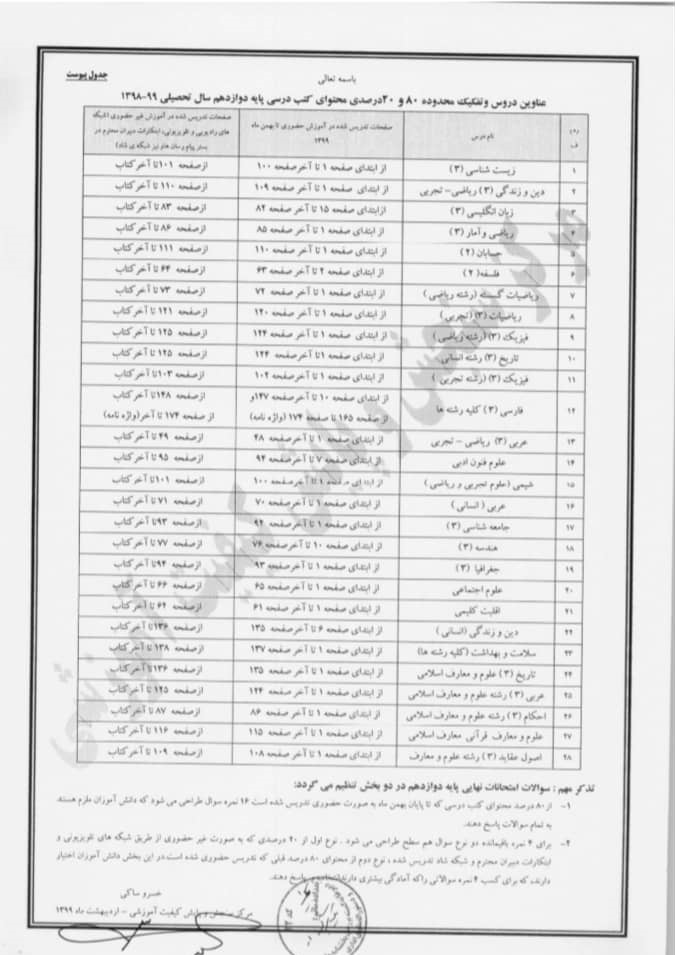 باسمه تعالی
جدول پیوست
عناوین دروس وتفکیک محدوده ۸۰ و ۲۰درصدی محتوای کتب درسی پایه دوازدهم سال تحصیلی ۹۹-۱۳۹۸
ردیف نام درس صفحات تدریس شده در آموزش حضوری تا بهمن ماه ۱۳۹۹ صفحات تدریس شده در آموزش غیر حضوری (شبکه های رادیویی و تلویزیونی، ابتکارات دبیران محترم در بستر پیام رسان ها و نیز شبکه ی شاد)
۱ زیست شناسی (۳) از ابتدای صفحه ۱ تا آخر صفحه ۱۰۰ ازصفحه ۱۰۱ تا آخر کتاب
۲ دین و زندگی (۳) ریاضی- تجربی از ابتدای صفحه ۱ تا آخر صفحه ۱۰۹ ازصفحه ۱۱۰ تا آخر کتاب
۳ زبان انگلیسی (۳) ازابتدای صفحه ۱۵ تا آخر صفحه ۸۲ ازصفحه ۸۳ تا آخر کتاب
۴ ریاضی و آمار (۳) از ابتدای صفحه ۱ تا آخر صفحه ۸۵ ازصفحه ۸۶ تا آخر کتاب
۵ حسابان (۲) از ابتدای صفحه ۱ تا آخر صفحه ۱۱۰ ازصفحه ۱۱۱ تا آخر کتاب
۶ فلسفه( ۲) از ابتدای صفحه ۲ تا آخر صفحه ۶۳ ازصفحه ۶۴ تا آخر کتاب
۷ ریاضیات گسسته (رشته ریاضی) از ابتدای صفحه ۱ تا آخر صفحه ۷۲ ازصفحه ۷۳ تا آخر کتاب
۸ ریاضیات (۳) (تجربی) از ابتدای صفحه ۱ تا آخر صفحه ۱۲۰ ازصفحه ۱۲۱ تا آخر کتاب
۹ فیزیک (۳) (رشته ریاضی) از ابتدای صفحه ۱ تا آخر صفحه ۱۲۴ ازصفحه ۱۲۵ تا آخر کتاب
۱۰ تاریخ (۳) رشته انسانی از ابتدای صفحه ۱تا آخر صفحه ۱۲۴ ازصفحه ۱۲۵ تا آخر کتاب
۱۱ فیزیک (۳) (رشته تجربی ) از ابتدای صفحه ۱ تا آخر صفحه ۱۰۲ ازصفحه ۱۰۳ تا آخر کتاب
۱۲ فارسی (۳) کلیه رشته ها از ابتدای صفحه ۱۰ تا آخر صفحه ۱۴۷و ازصفحه ۱۴۸ تا آخر کتاب
از صفحه ۱۶۵ تا صفحه ۱۷۴ (واژه نامه) از صفحه ۱۷۴ تا آخر(واژه نامه)
۱۳ عربی (۳) ریاضی - تجربی از ابتدای صفحه ۱ تا آخر صفحه ۴۸ ازصفحه ۴۹ تا آخر کتاب
۱۴ علوم فنون ادبی از ابتدای صفحه ۷ تا آخر صفحه ۹۴ ازصفحه ۹۵ تا آخر کتاب
۱۵ شیمی (علوم تجربی و ریاضی ) از ابتدای صفحه ۱ تا آخر صفحه ۱۰۰ ازصفحه ۱۰۱تا آخر کتاب
۱۶ عربی ( انسانی ) از ابتدای صفحه ۱ تا آخر صفحه ۷۰ ازصفحه ۷۱ تا آخر کتاب
۱۷ جامعه شناسی (۳) از ابتدای صفحه ۱ تا آخر صفحه ۹۲ ازصفحه ۹۳تا آخر کتاب
۱۸ هندسه (۳) از ابتدای صفحه ۱۰ تا آخر صفحه ۷۶ ازصفحه ۷۷ تا آخر کتاب
۱۹ جغرافیا (۳) از ابتدای صفحه ۱ تا آخر صفحه ۹۳ ازصفحه ۹۴تا آخر کتاب
۲۰ علوم اجتماعی از ابتدای صفحه ۱ تا آخر صفحه ۶۵ ازصفحه ۶۶ تا آخر کتاب
۲۱ اقلیت کلیمی از ابتدای صفحه ۱ تا آخر صفحه ۶۱ ازصفحه ۶۲ تا آخر کتاب
۲۲ دین و زندگی (انسانی ) از ابتدای صفحه ۶ تا آخر صفحه ۱۳۵ ازصفحه ۱۳۶تا آخر کتاب
۲۳ سلامت و بهداشت (کلیه رشته ها) از ابتدای صفحه ۱ تا آخر صفحه ۱۳۷ ازصفحه ۱۳۸ تا آخر کتاب
۲۴ تاریخ (۳) علوم و معارف اسلامی از ابتدای صفحه ۱ تا آخر صفحه ۱۳۵ ازصفحه ۱۳۶تا آخر کتاب
۲۵ عربی (۳) رشته علوم و معارف اسلامی از ابتدای صفحه ۱ تا آخر صفحه ۱۲۴ ازصفحه ۱۲۵ تا آخر کتاب
۲۶ احکام (۳) رشته علوم و معارف اسلامی از ابتدای صفحه ۱ تا آخر صفحه ۸۶ ازصفحه ۸۷ تا آخر کتاب
۲۷ علوم و معارف قرآنی معارف اسلامی از ابتدای صفحه ۱ تا آخر صفحه ۱۱۵ ازصفحه ۱۱۶ تا آخر کتاب
۲۸ اصول عقاید (۳) رشته علوم و معارف از ابتدای صفحه ۱ تا آخر صفحه ۱۰۸ ازصفحه ۱۰۹ تا آخر کتاب
تذکر مهم : سوالات امتحانات نهایی پایه دوازدهم در دو بخش تنظیم می گردد:
۱- از۸۰ درصد محتوای کتب درسی که تا پایان بهمن ماه به صورت حضوری تدریس شده است ۱۶ نمره سوال طراحی می شود که دانش آموزان ملزم هستند
به تمام سوالات پاسخ دهند.
۲- برای ۴ نمره باقیمانده دو نوع سوال هم سطح طراحی می شود . نوع اول از ۲۰ درصدی که به صورت غیر حضوری از طریق شبکه های تلویزیونی و
ابتکارات دبیران محترم و شبکه شاد تدریس شده ، نوع دوم از محتوای ۸۰ درصد قبلی که تدریس حضوری شده است.در این بخش دانش آموزان اختیار
دارند، که برای کسب ۴ نمره سوالاتی راکه آمادگی بیشتری دارند پاسخ دهند.
خسرو ساکی
مرکز سنجش و پایش کیفیت آموزشی - اردیبهشت ماه ۱۳۹۹
مرکز سنجش و پایش کیفیت آموزشی